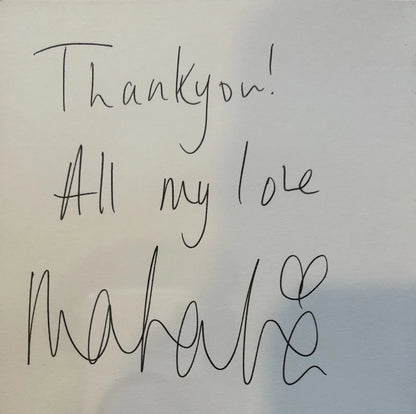 Thankyou!
All my love